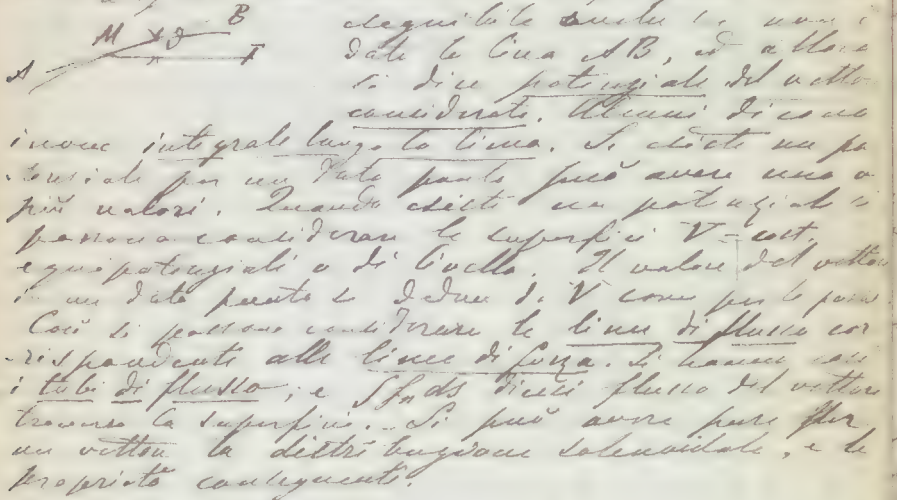 B
M
A
date la linea AB, ed allora
si dice potenziale del vettore
considerato. Alcuni dicono
invece integrale lungo la linea. Se esiste un po
tenziale per un dato punto può avere uno o
più valori. Quando esiste un potenziale si
possono considerare le superfici V=cost.
equipotenziali o di livello. Il valore del vettore
in un dato punto si deduce da V come per le
Così si possono considerare le linee di flusso cor
rispondenti alle linee di forza. Si hanno così
i tubi di flusso, e ∫fₙds dicesi flusso del vettore
traverso la superficie. Si può avere pure per
un vettore la distribuzione solenoidale, e le
proprietà conseguenti.